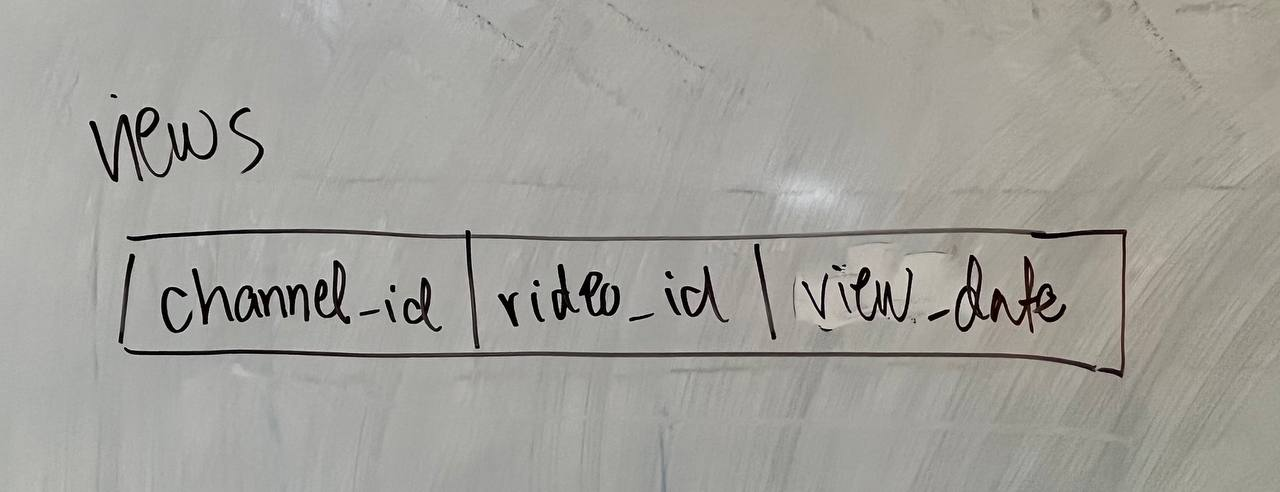 views
channel_id video_id view_date